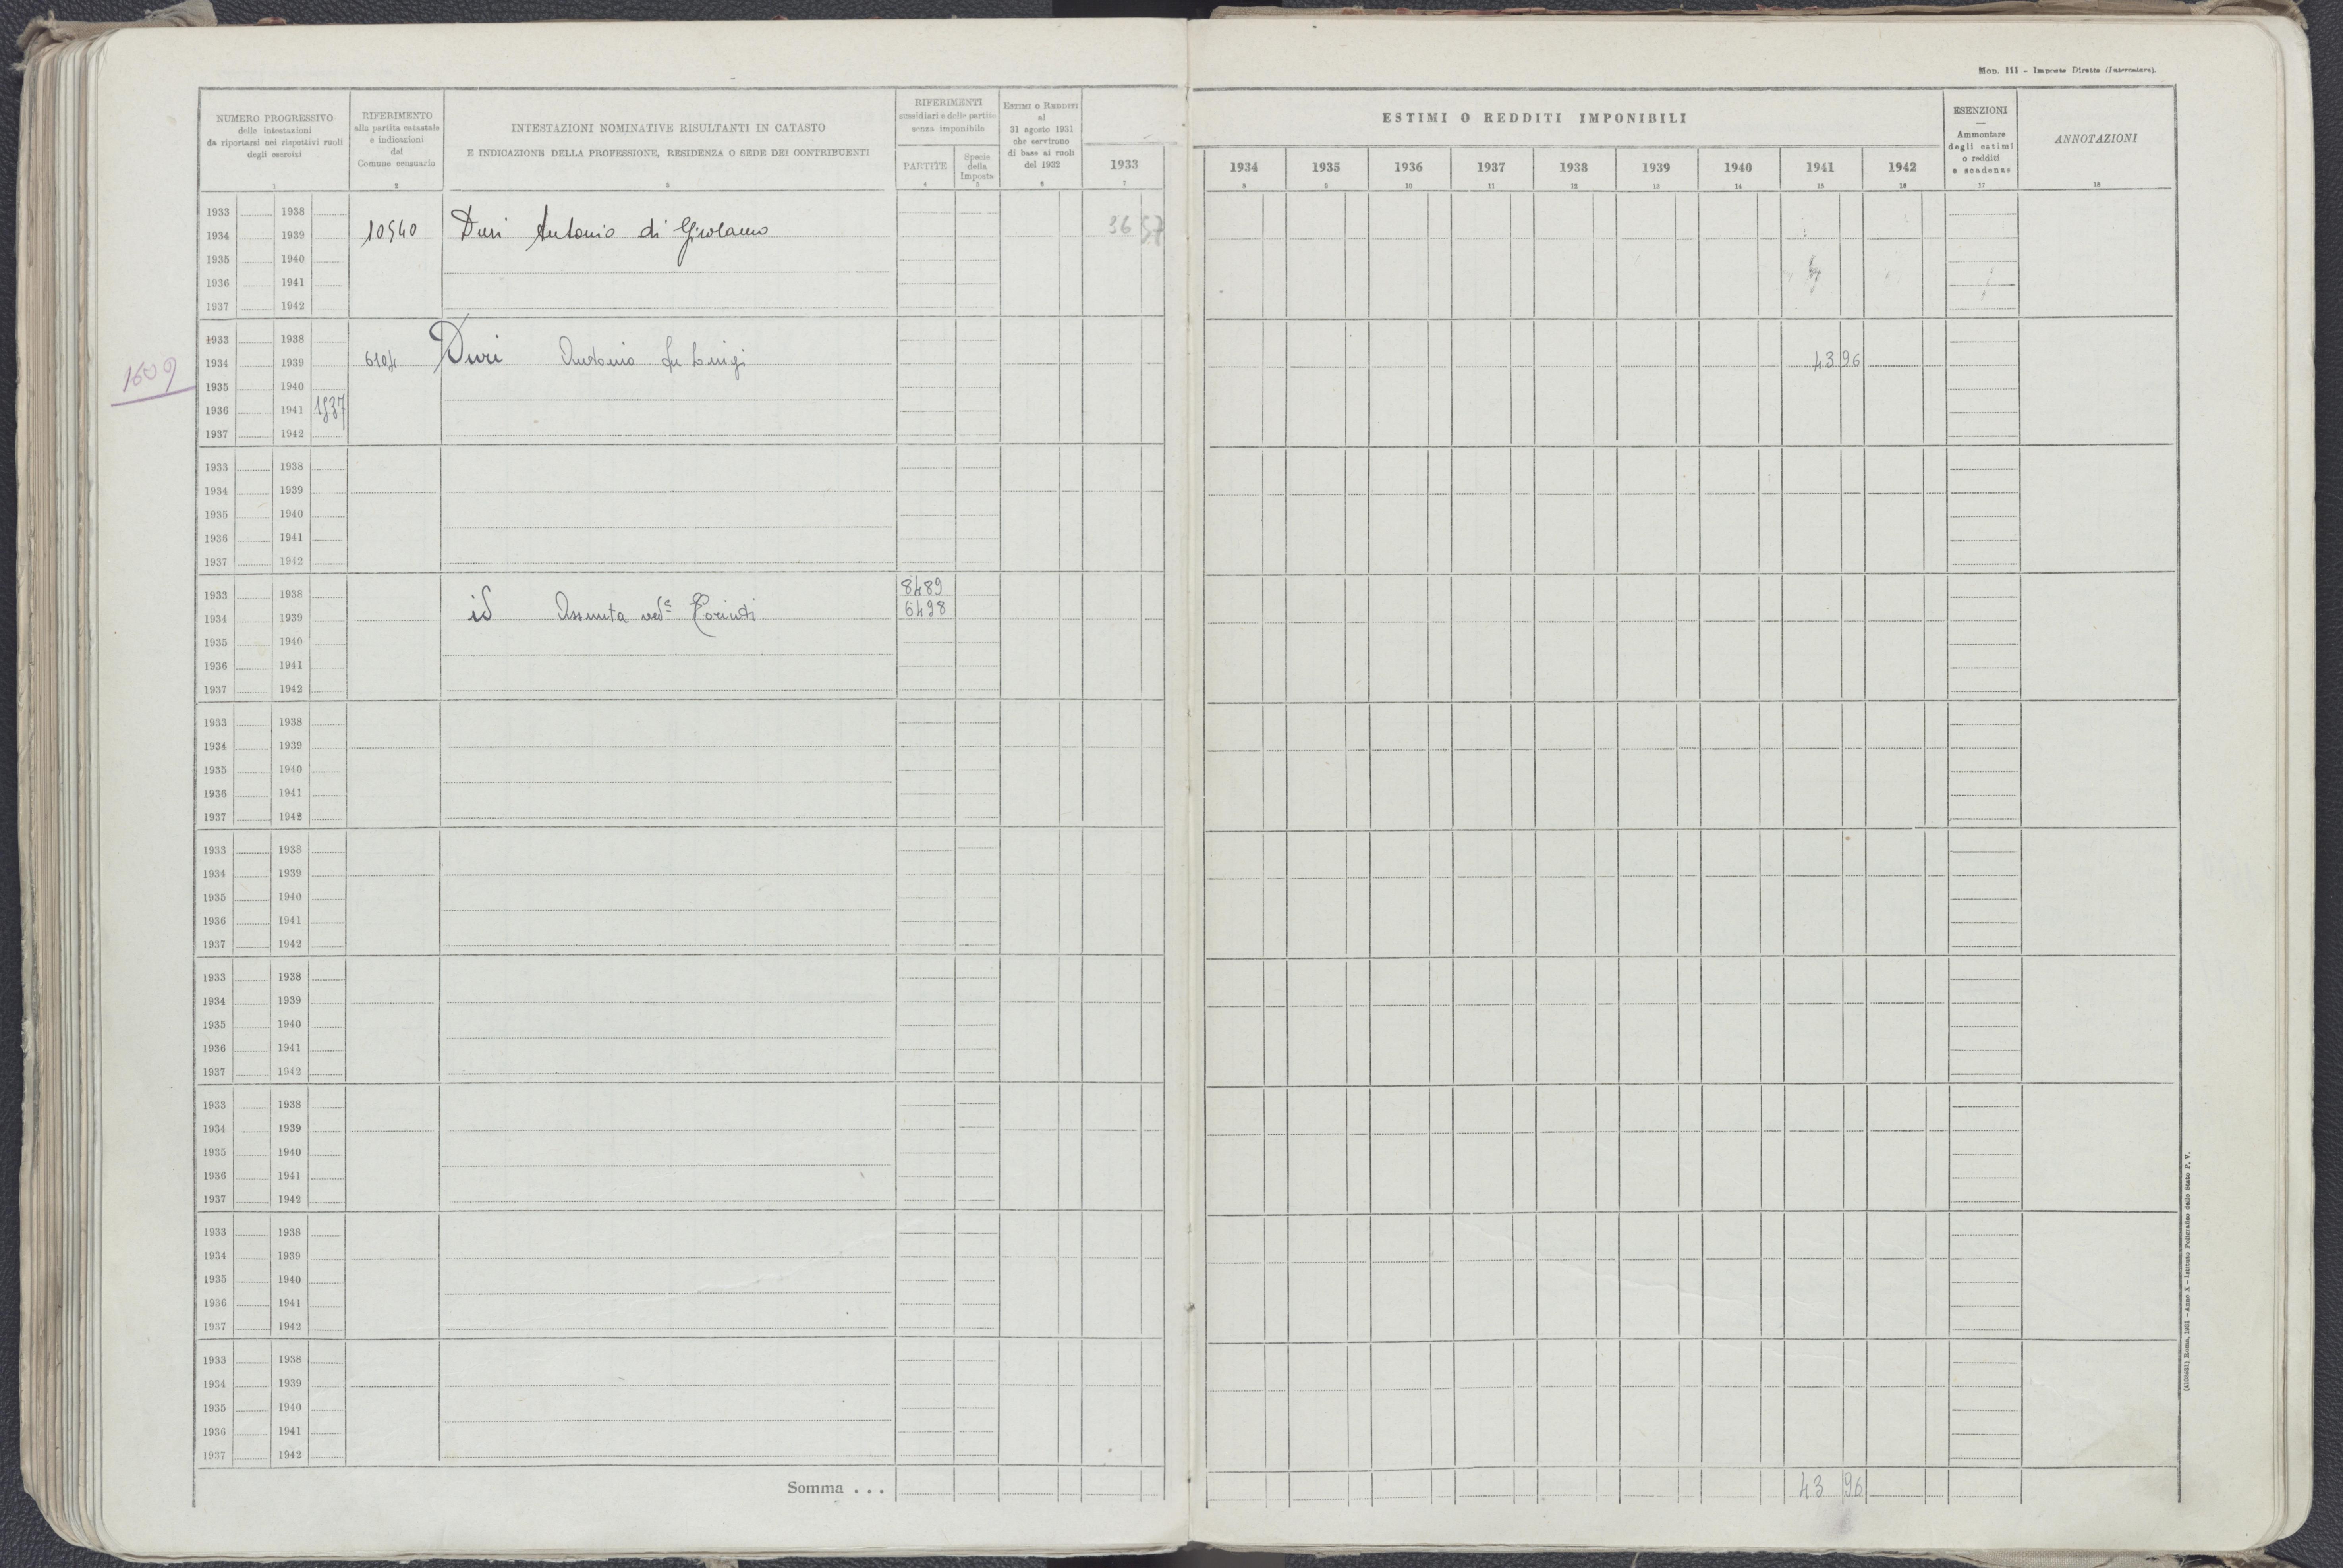 Mod. 111 - Imposte Dirette (Intercalare).
NUMERO PROGRESSIVO
delle intestazioni
da riportarsi nei rispettivi ruoli
degli esercizi
RIFERIMENTO
alla partita catastale
e indicazioni
del
Comune censuario
INTESTAZIONI NOMINATIVE RISULTANTI IN CATASTO
E INDICAZIONE DELLA PROFESSIONE, RESIDENZA O SEDE DEI CONTRIBUENTI
RIFERIMENTI
sussidiari e delle partite
senza imponibile
PARTITE
Specie
della
Imposta
ESTIMI O REDDITI
al
31 agosto 1931
che servirono
di base ai ruoli
del 1932
1933
ESTIMI O REDDITI IMPONIBILI
1934 1935 1936 1937 1938 1939 1940 1941 1942
ESENZIONI
—
Ammontare
degli estimi
o redditi
e scadenze
ANNOTAZIONI
1 2 3 4 5 6 7 8 9 10 11 12 13 14 15 16 17 18
1933 1938
1934 1939 10540 Duri Antonio di Girolamo 36 57
1935 1940
1936 1941
1937 1942
1933 1938
1934 1939 6194 Duri Antonio fu Luigi 43 96
1609
1935 1940
1936 1941 1537
1937 1942
1933 1938
1934 1939
1935 1940
1936 1941
1937 1942
1933 1938 8489
1934 1939 id Assunta ved. 6498
1935 1940
1936 1941
1937 1942
1933 1938
1934 1939
1935 1940
1936 1941
1937 1942
1933 1938
1934 1939
1935 1940
1936 1941
1937 1942
1933 1938
1934 1939
1935 1940
1936 1941
1937 1942
1933 1938
1934 1939
1935 1940
1936 1941
1937 1942
1933 1938
1934 1939
1935 1940
1936 1941
1937 1942
1933 1938
1934 1939
1935 1940
1936 1941
1937 1942
Somma . . . 43 96
Roma, 1931 - Anno X - Istituto Poligrafico dello Stato P. V.